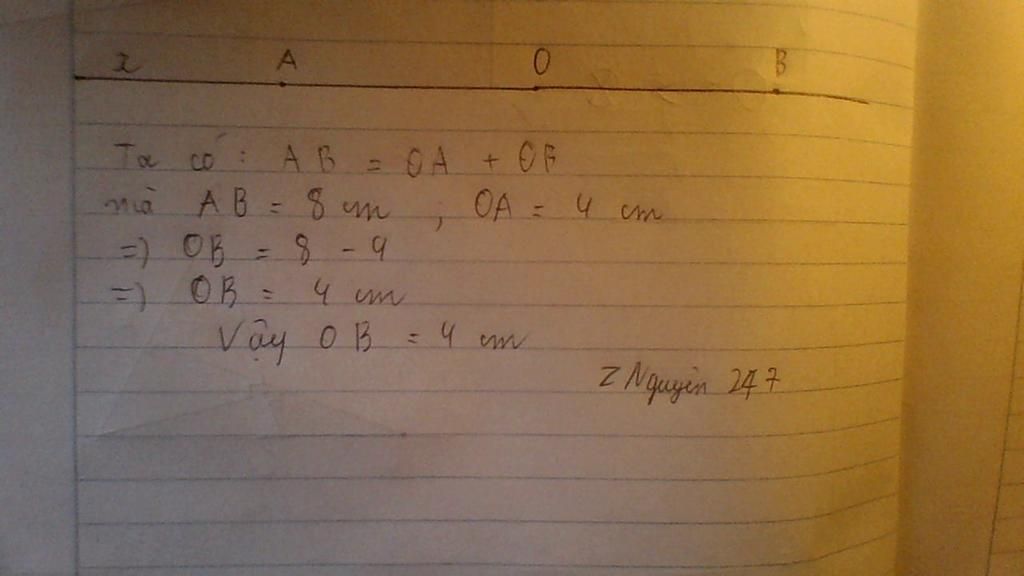 x A O B
Ta có: AB = OA + OB
mà AB = 8 cm ; OA = 4 cm
=) OB = 8 - 4
=) OB = 4 cm
Vậy OB = 4 cm
Z Nguyên 247